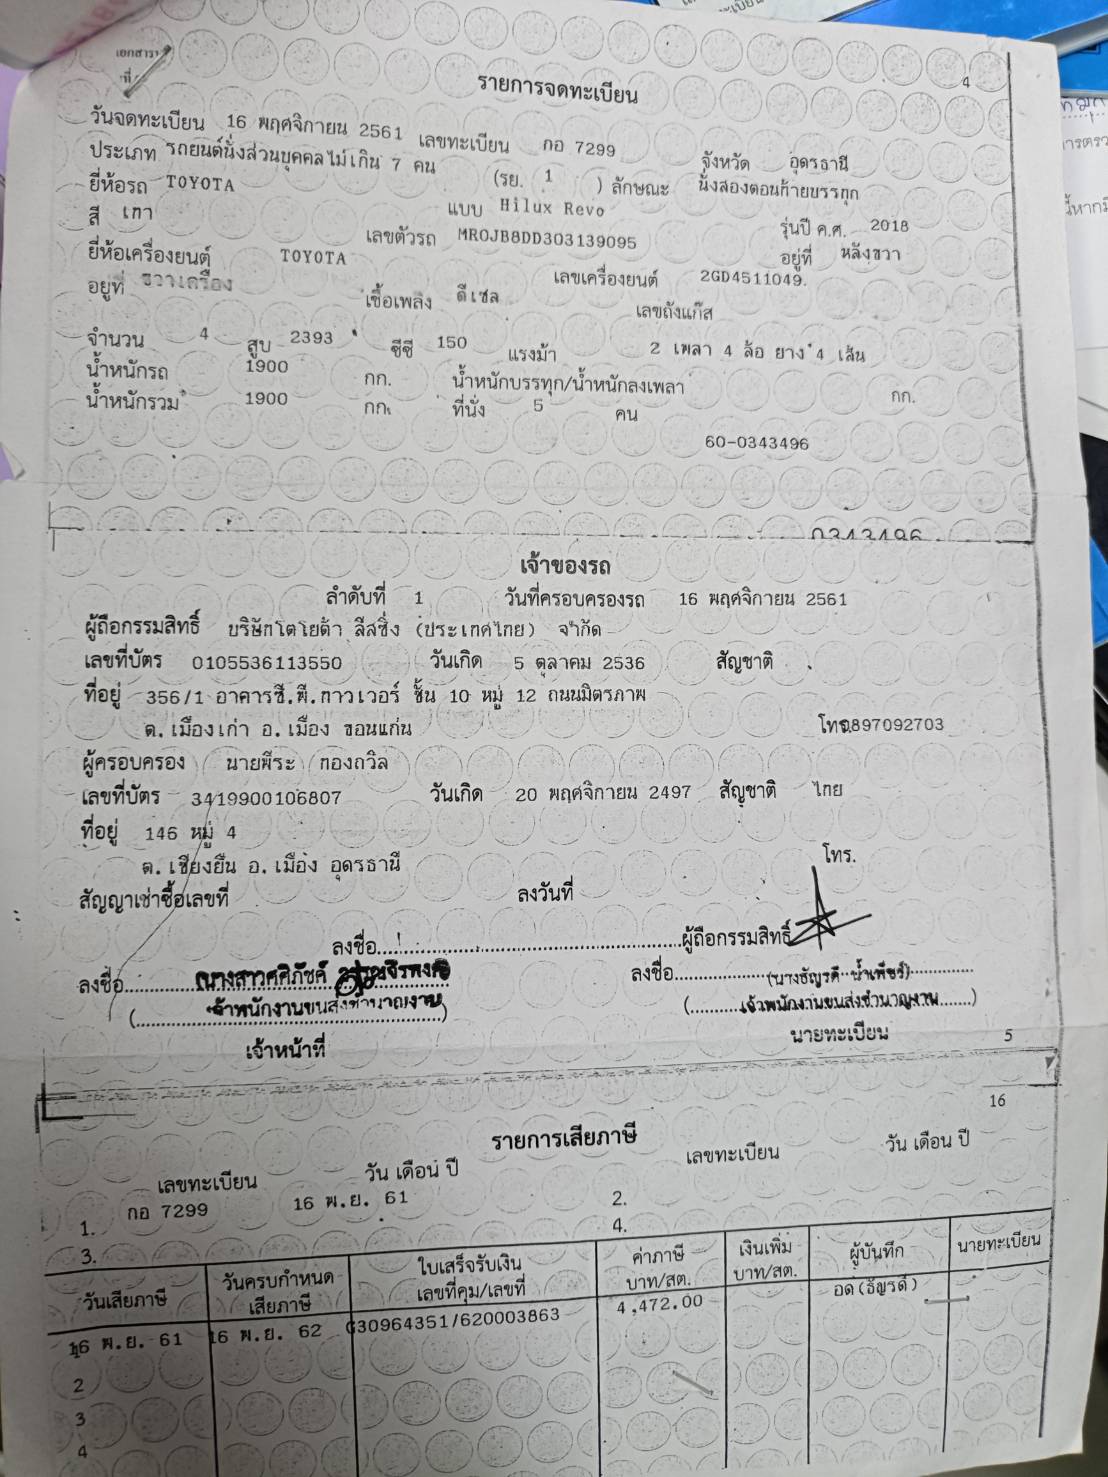 เอกสาร
ที่
4
รายการจดทะเบียน
วันจดทะเบียน 16 พฤศจิกายน 2561 เลขทะเบียน กอ 7299 จังหวัด อุดรธานี
ประเภท รถยนต์นั่งส่วนบุคคลไม่เกิน 7 คน (รย. 1 ) ลักษณะ นั่งสองตอนท้ายบรรทุก
ยี่ห้อรถ TOYOTA แบบ Hilux Revo รุ่นปี ค.ศ. 2018
สี เทา เลขตัวรถ MR0JB8DD303139095 อยู่ที่ หลังขวา
ยี่ห้อเครื่องยนต์ TOYOTA เลขเครื่องยนต์ 2GD4511049.
อยู่ที่ ขวาเครื่อง เชื้อเพลิง ดีเซล เลขถังแก๊ส
จำนวน 4 สูบ 2393 ซีซี 150 แรงม้า 2 เพลา 4 ล้อ ยาง 4 เส้น
น้ำหนักรถ 1900 กก. น้ำหนักบรรทุก/น้ำหนักลงเพลา กก.
น้ำหนักรวม 1900 กก. ที่นั่ง 5 คน
60-0343496
0343496
เจ้าของรถ
ลำดับที่ 1 วันที่ครอบครองรถ 16 พฤศจิกายน 2561
ผู้ถือกรรมสิทธิ์ บริษัทโตโยต้า ลีสซิ่ง (ประเทศไทย) จำกัด
เลขที่บัตร 0105536113550 วันเกิด 5 ตุลาคม 2536 สัญชาติ .
ที่อยู่ 356/1 อาคารซี.พี.ทาวเวอร์ ชั้น 10 หมู่ 12 ถนนมิตรภาพ
ต.เมืองเก่า อ.เมือง ขอนแก่น โทร.0897092703
ผู้ครอบครอง นายพีระ ทองถวิล
เลขที่บัตร 3419900106807 วันเกิด 20 พฤศจิกายน 2497 สัญชาติ ไทย
ที่อยู่ 146 หมู่ 4
ต.เชียงยืน อ.เมือง อุดรธานี โทร.
สัญญาเช่าซื้อเลขที่ ลงวันที่
ลงชื่อ ผู้ถือกรรมสิทธิ์
ลงชื่อ (นางสาวศศิภัชค์ ลงชื่อ (นางธัญรดี น้ำเพ็ชร์)
(เจ้าพนักงานขนส่งชำนาญงาน) (เจ้าพนักงานขนส่งชำนาญงาน)
เจ้าหน้าที่ นายทะเบียน 5
16
รายการเสียภาษี
เลขทะเบียน วัน เดือน ปี เลขทะเบียน วัน เดือน ปี
1. กอ 7299 16 พ.ย. 61 2.
3. 4.
วันเสียภาษี วันครบกำหนดเสียภาษี ใบเสร็จรับเงิน เลขที่คุม/เลขที่ ค่าภาษี บาท/สต. เงินเพิ่ม บาท/สต. ผู้บันทึก นายทะเบียน
16 พ.ย. 61 16 พ.ย. 62 G30964351/620003863 4,472.00 อด(ธัญรดี)
2
3
4